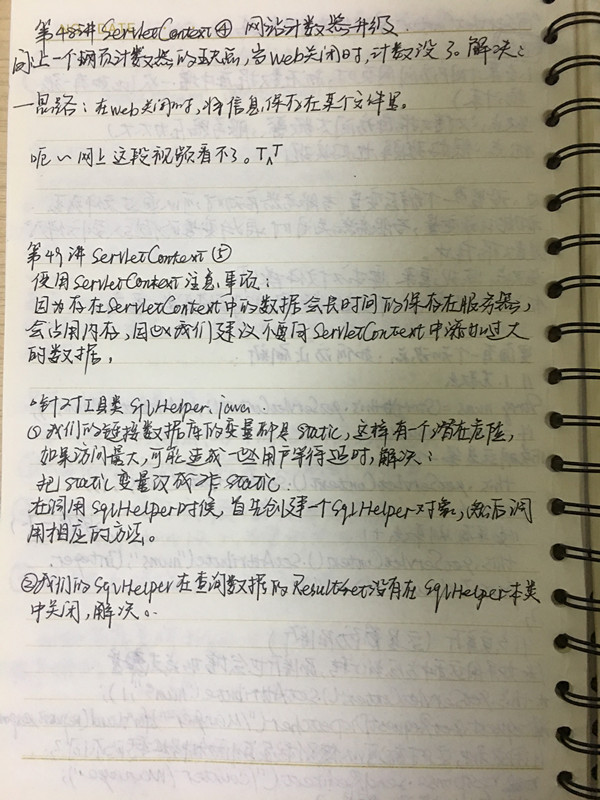 第48讲 ServletContext④ 网站计数器升级.
同上一个网页计数器的缺点,当Web关闭时,计数没了。解决:
一思路:在web关闭时,将信息保存在某个文件里。
呃~网上这段视频看不了。T^T
第49讲 ServletContext⑤
使用ServletContext注意事项:
因为存在ServletContext中的数据会长时间的保存在服务器,
会占用内存,因此我们建议不要向ServletContext中添加过大
的数据,
针对工具类SqlHelper.java.
①我们的链接数据库的变量都是static,这样有一个潜在危险,
如果访问量大,可能造成一些用户等待延时,解决:
把static变量改成非static.
在调用SqlHelper时候,首先创建一个SqlHelper对象,然后调
用相应的方法。
②我们的SqlHelper在查询数据的ResultSet没有在SqlHelper本类
中关闭,解决。